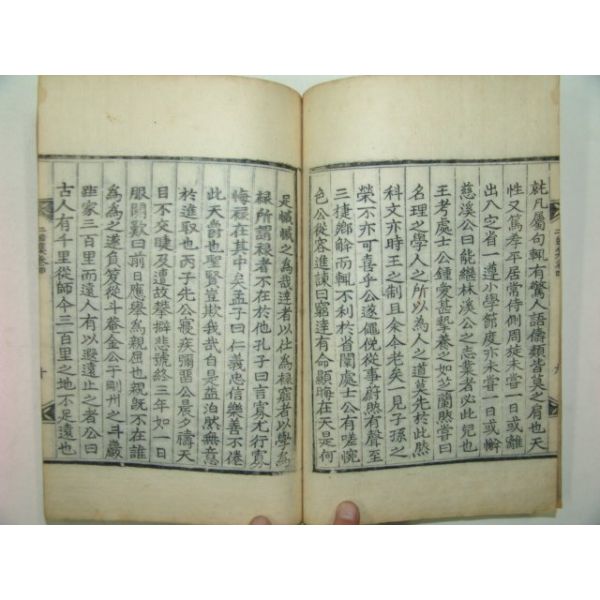 就凡屬句輒有驚人語儕類皆莫之肩也天
性又篤孝平居常侍側周旋未嘗一日或離
出入定省一遵小學節度亦未嘗一日或懈
慈溪公曰能繼林溪公之志業者必此兒也
王考處士公鍾愛甚摯養之如芝蘭然嘗曰
名理之學人之所以為人之道莫先於此然
科文亦時王之制且余今老矣一見子孫之
榮不亦可喜乎公遂僶俛從事蔚然有聲至
三捷鄕解而輒不利於省闈處士公有嗟惋
色公從容進諫曰窮達有命顯晦在天是何
足慽慽之為哉達者以仕為祿窮者以學為
祿所謂祿者不在於他孔子曰言寡尤行寡
悔祿在其中矣孟子曰仁義忠信樂善不倦
此天爵也聖賢豈欺我哉自是益泊然無意
於進取也丙子先公寢疾彌留公晨夕禱天
目不交睫及遭故攀擗悲號終三年如一日
服闋歎曰前日應擧為親屈也親旣不在誰
為為之遂負笈從斗菴金公于剛州之斗巖
距家三百里而遠人有以遐遠止之者公曰
古人有千里從師今三百里之地不足遠也